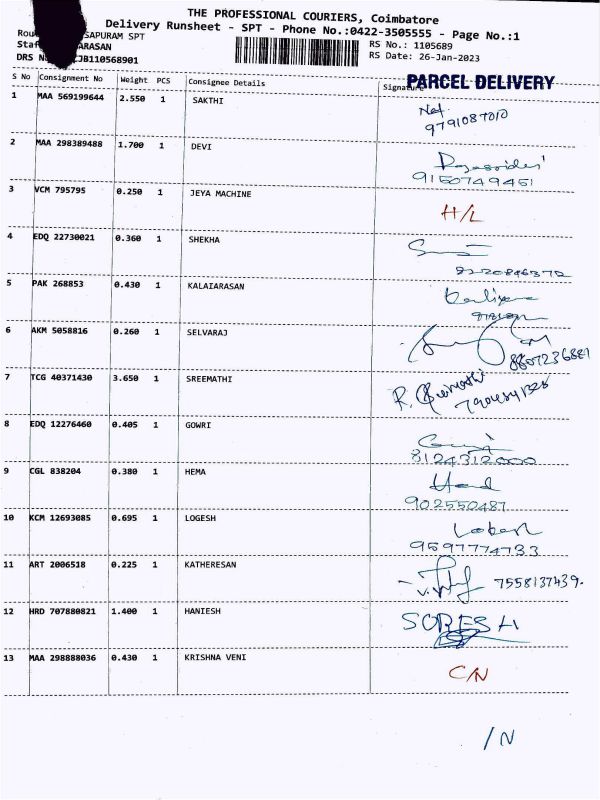 THE PROFESSIONAL COURIERS, Coimbatore
Delivery Runsheet - SPT - Phone No.:0422-3505555 - Page No.:1
SAPURAM SPT
RS No.: 1105689
ARASAN
RS Date: 26-Jan-2023
JB110568901
PARCEL DELIVERY
S No Consignment No Weight PCS Consignee Details Signature
1 MAA 569199644 2.550 1 SAKTHI
9791087010
2 MAA 298389488 1.700 1 DEVI
9150749451
3 VCM 795795 0.250 1 JEYA MACHINE H/L
4 EDQ 22730021 0.360 1 SHEKHA
5 PAK 268853 0.430 1 KALAIARASAN
6 AKM 5058816 0.260 1 SELVARAJ
8807236881
7 TCG 40371430 3.650 1 SREEMATHI
8 EDQ 12276460 0.405 1 GOWRI
8124312000
9 CGL 838204 0.380 1 HEMA
902550487
10 KCM 12693085 0.695 1 LOGESH
9597774733
11 ART 2006518 0.225 1 KATHERESAN 7558137439.
12 HRD 707880821 1.400 1 HANIESH SORESH
13 MAA 298888036 0.430 1 KRISHNA VENI C/N
/N